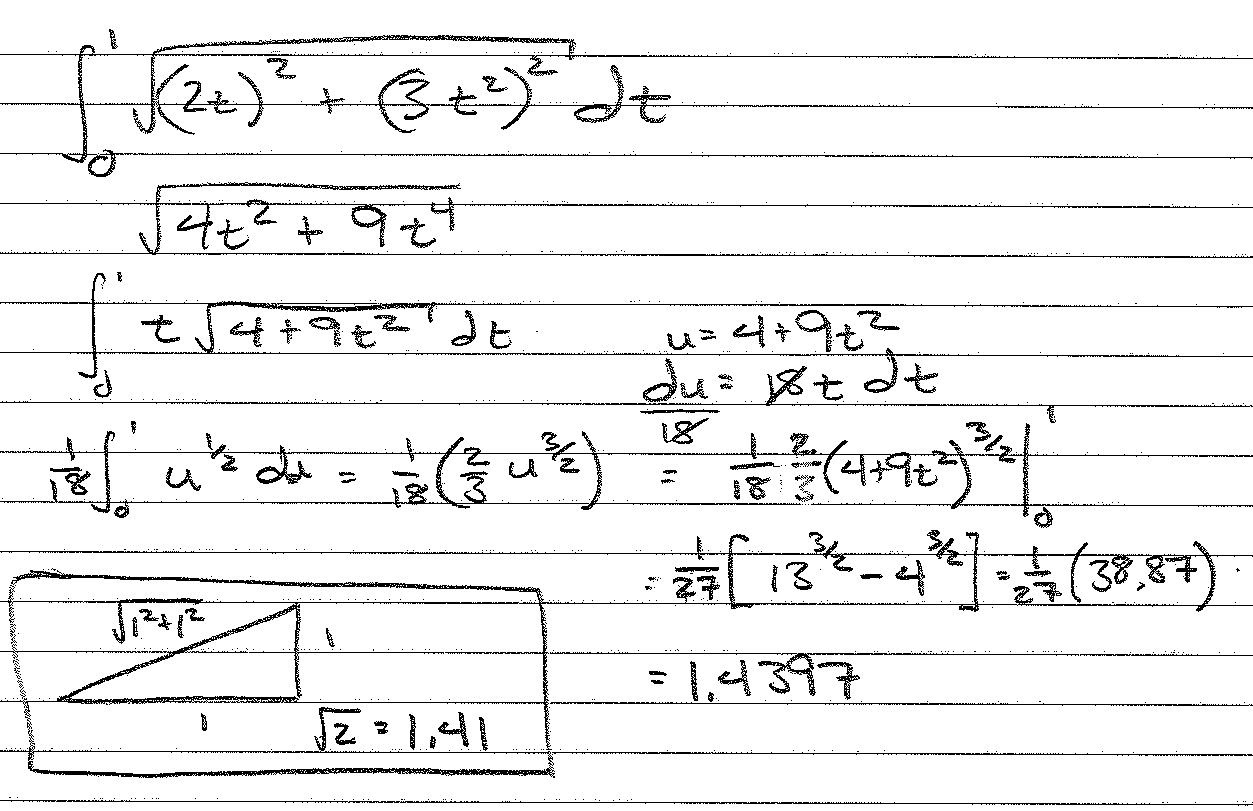 ∫₀¹ √((2t)² + (3t²)²) dt
√(4t² + 9t⁴)
∫₀¹ t √(4+9t²) dt
u = 4+9t²
du/18 = 18t dt
1/18 ∫₀¹ u^(1/2) du = 1/18 (2/3 u^(3/2)) = 1/18 · 2/3 (4+9t²)^(3/2) |₀¹
= 1/27 [13^(3/2) − 4^(3/2)] = 1/27 (38.87)
= 1.4397
√(1²+1²)
1
1
√2 = 1.41